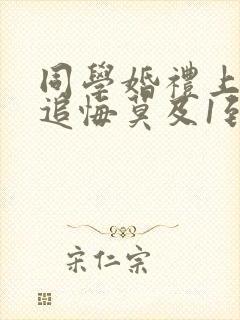 同學婚禮上
追悔莫及1
宋仁宗